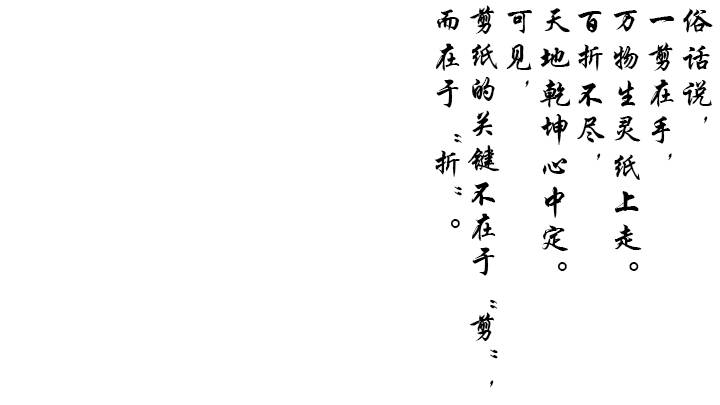 俗话说，
一剪在手，
万物生灵纸上走。
百折不尽，
天地乾坤心中定。
可见，
剪纸的关键不在于“剪”，
而在于“折”。